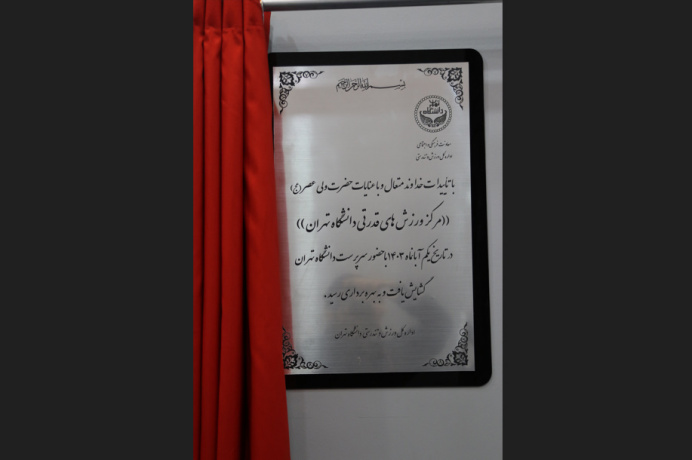 بسم الله الرحمن الرحیم
معاونت فرهنگی و اجتماعی
اداره کل ورزش و تندرستی
با تأییدات خداوند متعال و با عنایات حضرت ولی عصر (عج)
((مرکز ورزش های قدرتی دانشگاه تهران))
در تاریخ یکم آبانماه ۱۴۰۳ با حضور سرپرست دانشگاه تهران
گشایش یافت و به بهره برداری رسید.
اداره کل ورزش و تندرستی دانشگاه تهران